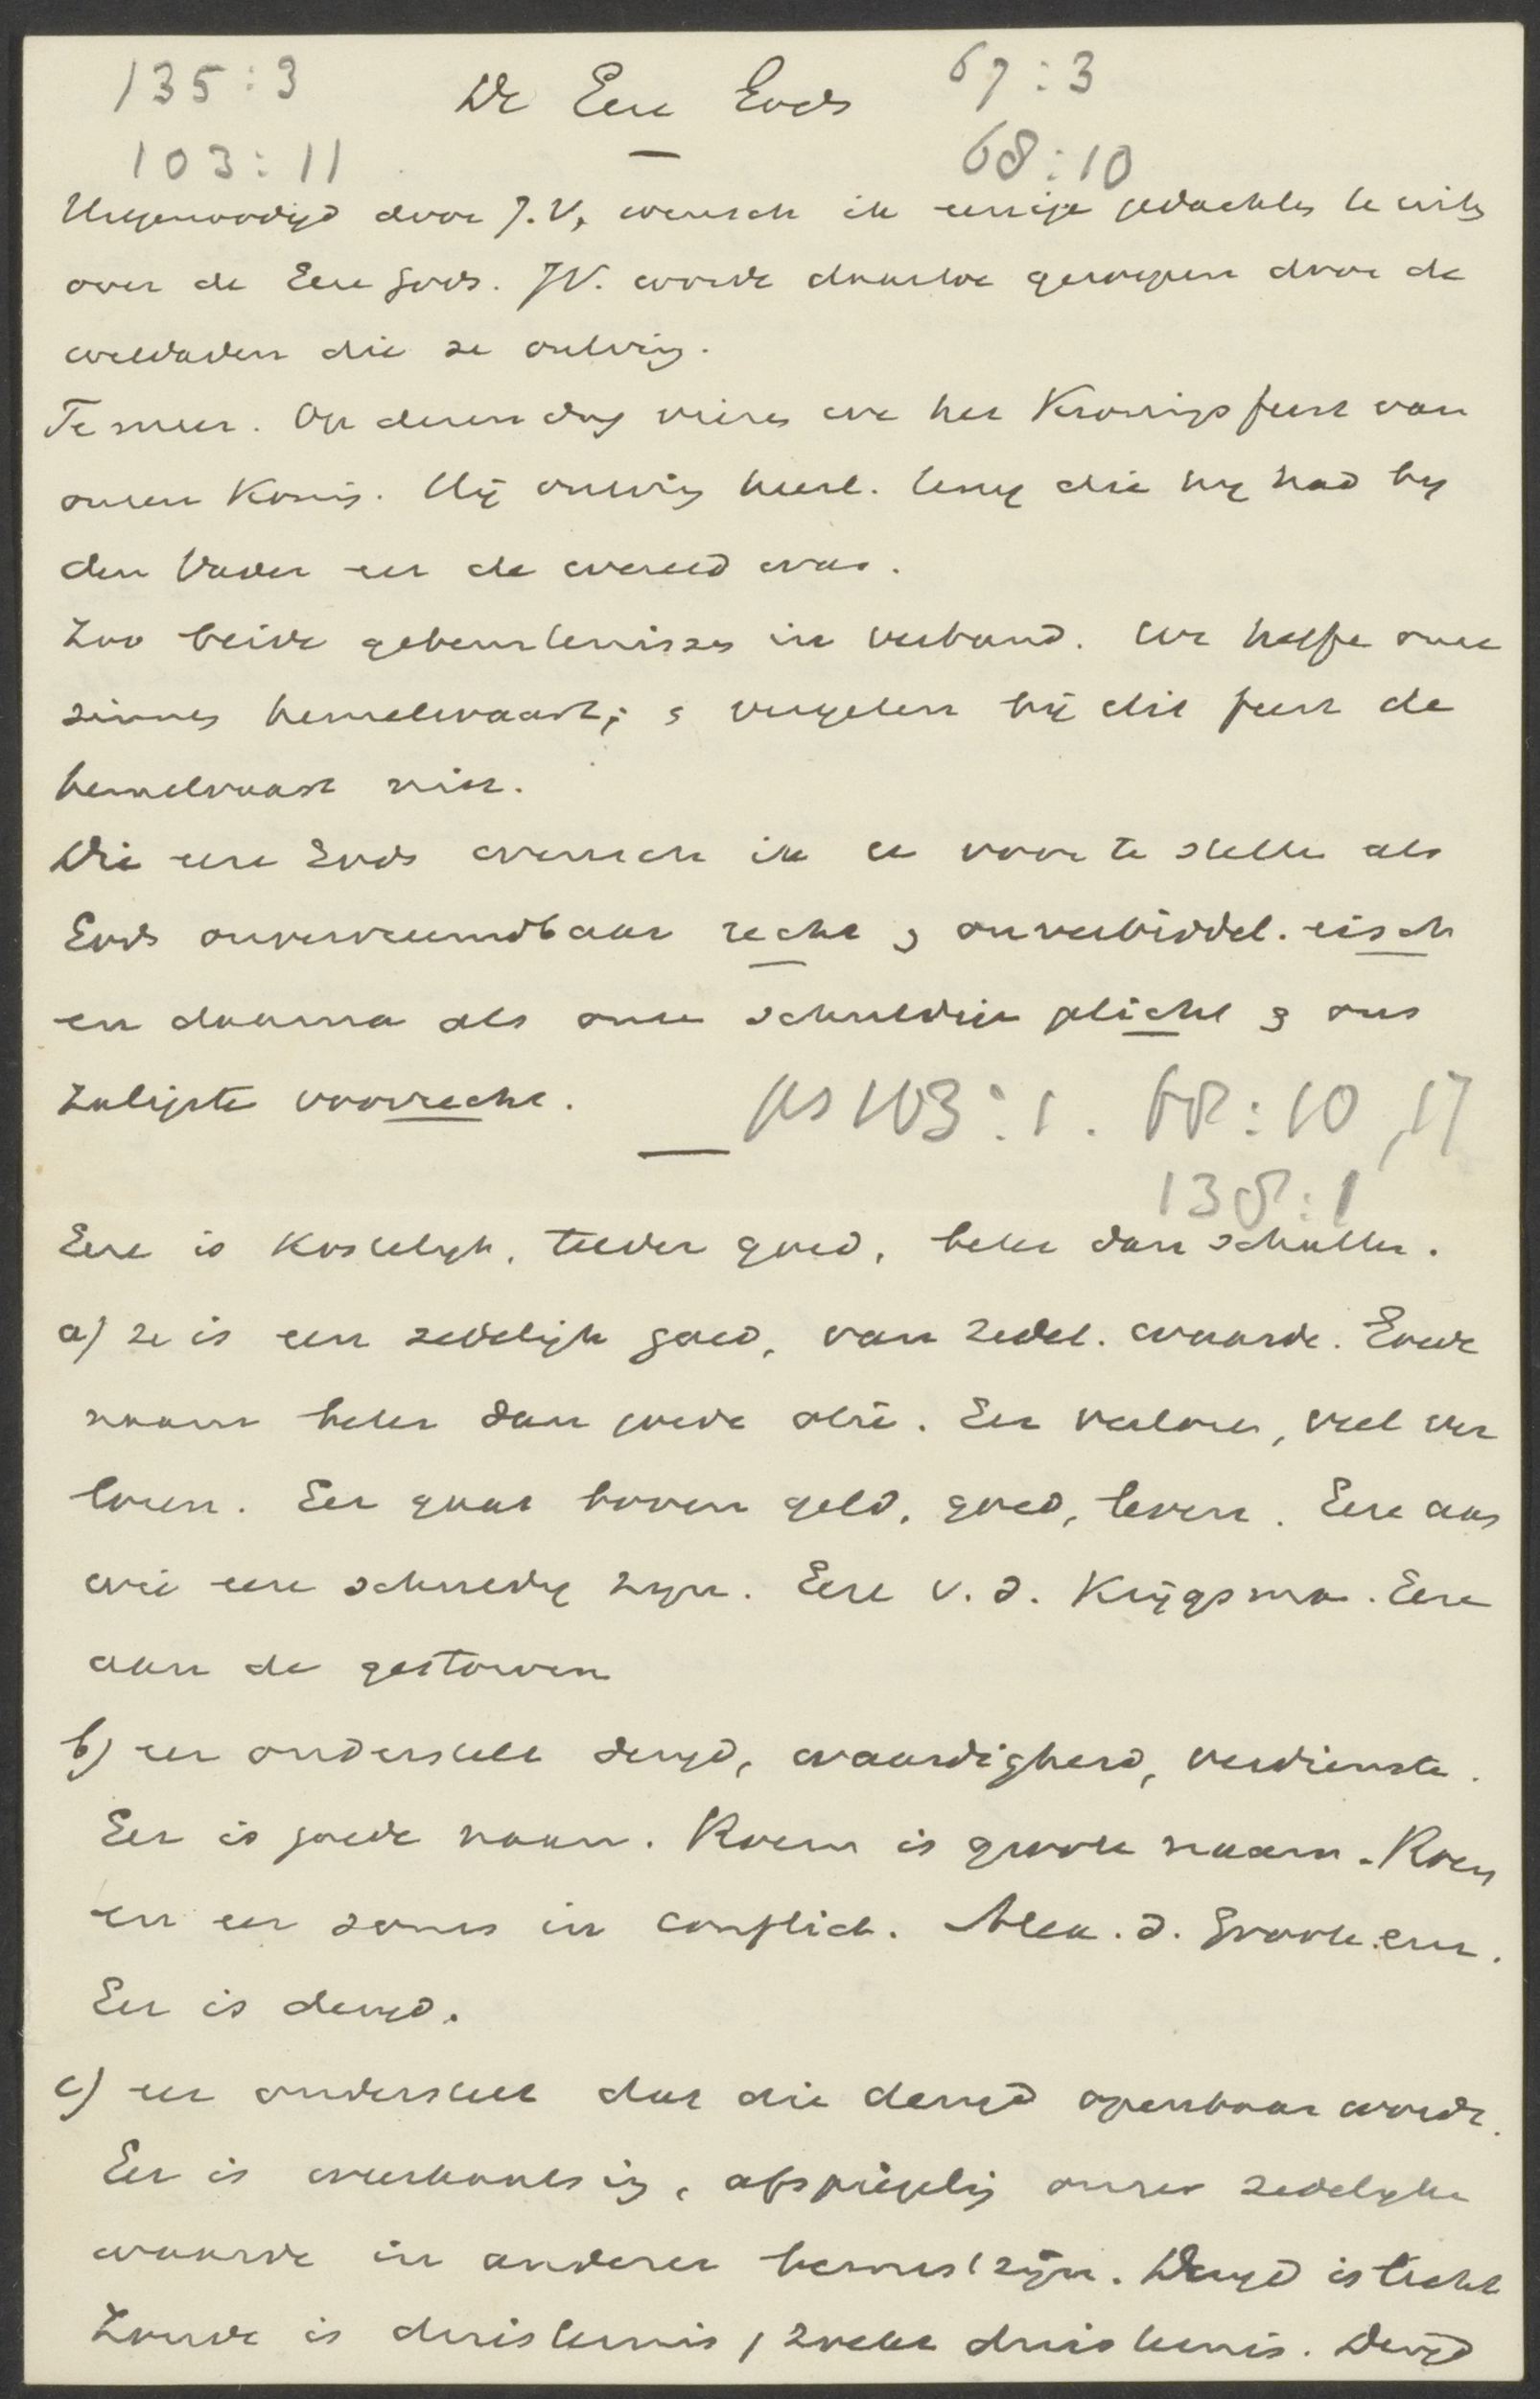 135:3 De Eere Gods 67:3
103:11 68:10
Uitgenoodigd door J.V., wensch ik eenige gedachten te uiten
over de Eere Gods. J.V. wordt daartoe geroepen door de
weldaden die ze ontving.
Te meer. Op dezen dag vieren we het Kroningsfeest van
onzen Koning. Hij ontving heerl. terug die hij had bij
den Vader eer de wereld was.
Zoo beide gebeurtenissen in verband. We
zinnen hemelwaart; & vergeten bij dit feest de
hemelvaart niet.
Die eere Gods wensch ik u voor te stellen als
Gods onvervreemdbaar recht & onverbiddel. eisch
en daarna als onze schuldige plicht & ons
zaligste voorrecht. Ps 103:1. 68:10,17
138:1
Eere is kostelijk, teeder goed, beter dan schatten.
a) ze is een zedelijk goed, van zedel. waarde. Goede
naam beter dan goede olie. Eer verloren, veel ver
loren. Eer gaat boven geld, goed, leven. Eere aan
wie eere schuldig zijn. Eere v. d. Krijgsman. Eere
aan de gestorven
b) eer onderstelt deugd, waardigheid, verdienste.
Eer is goede naam. Roem is groote naam. Roem
en eer soms in conflict. Alex. d. Groote enz.
Eer is deugd.
c) eer onderstelt dat die deugd openbaar wordt.
Eer is weerkaatsing, afspiegeling onzer zedelijke
waarde in anderer bewustzijn. Deugd is licht
Zonde is duisternis, zoekt duisternis. Deugd